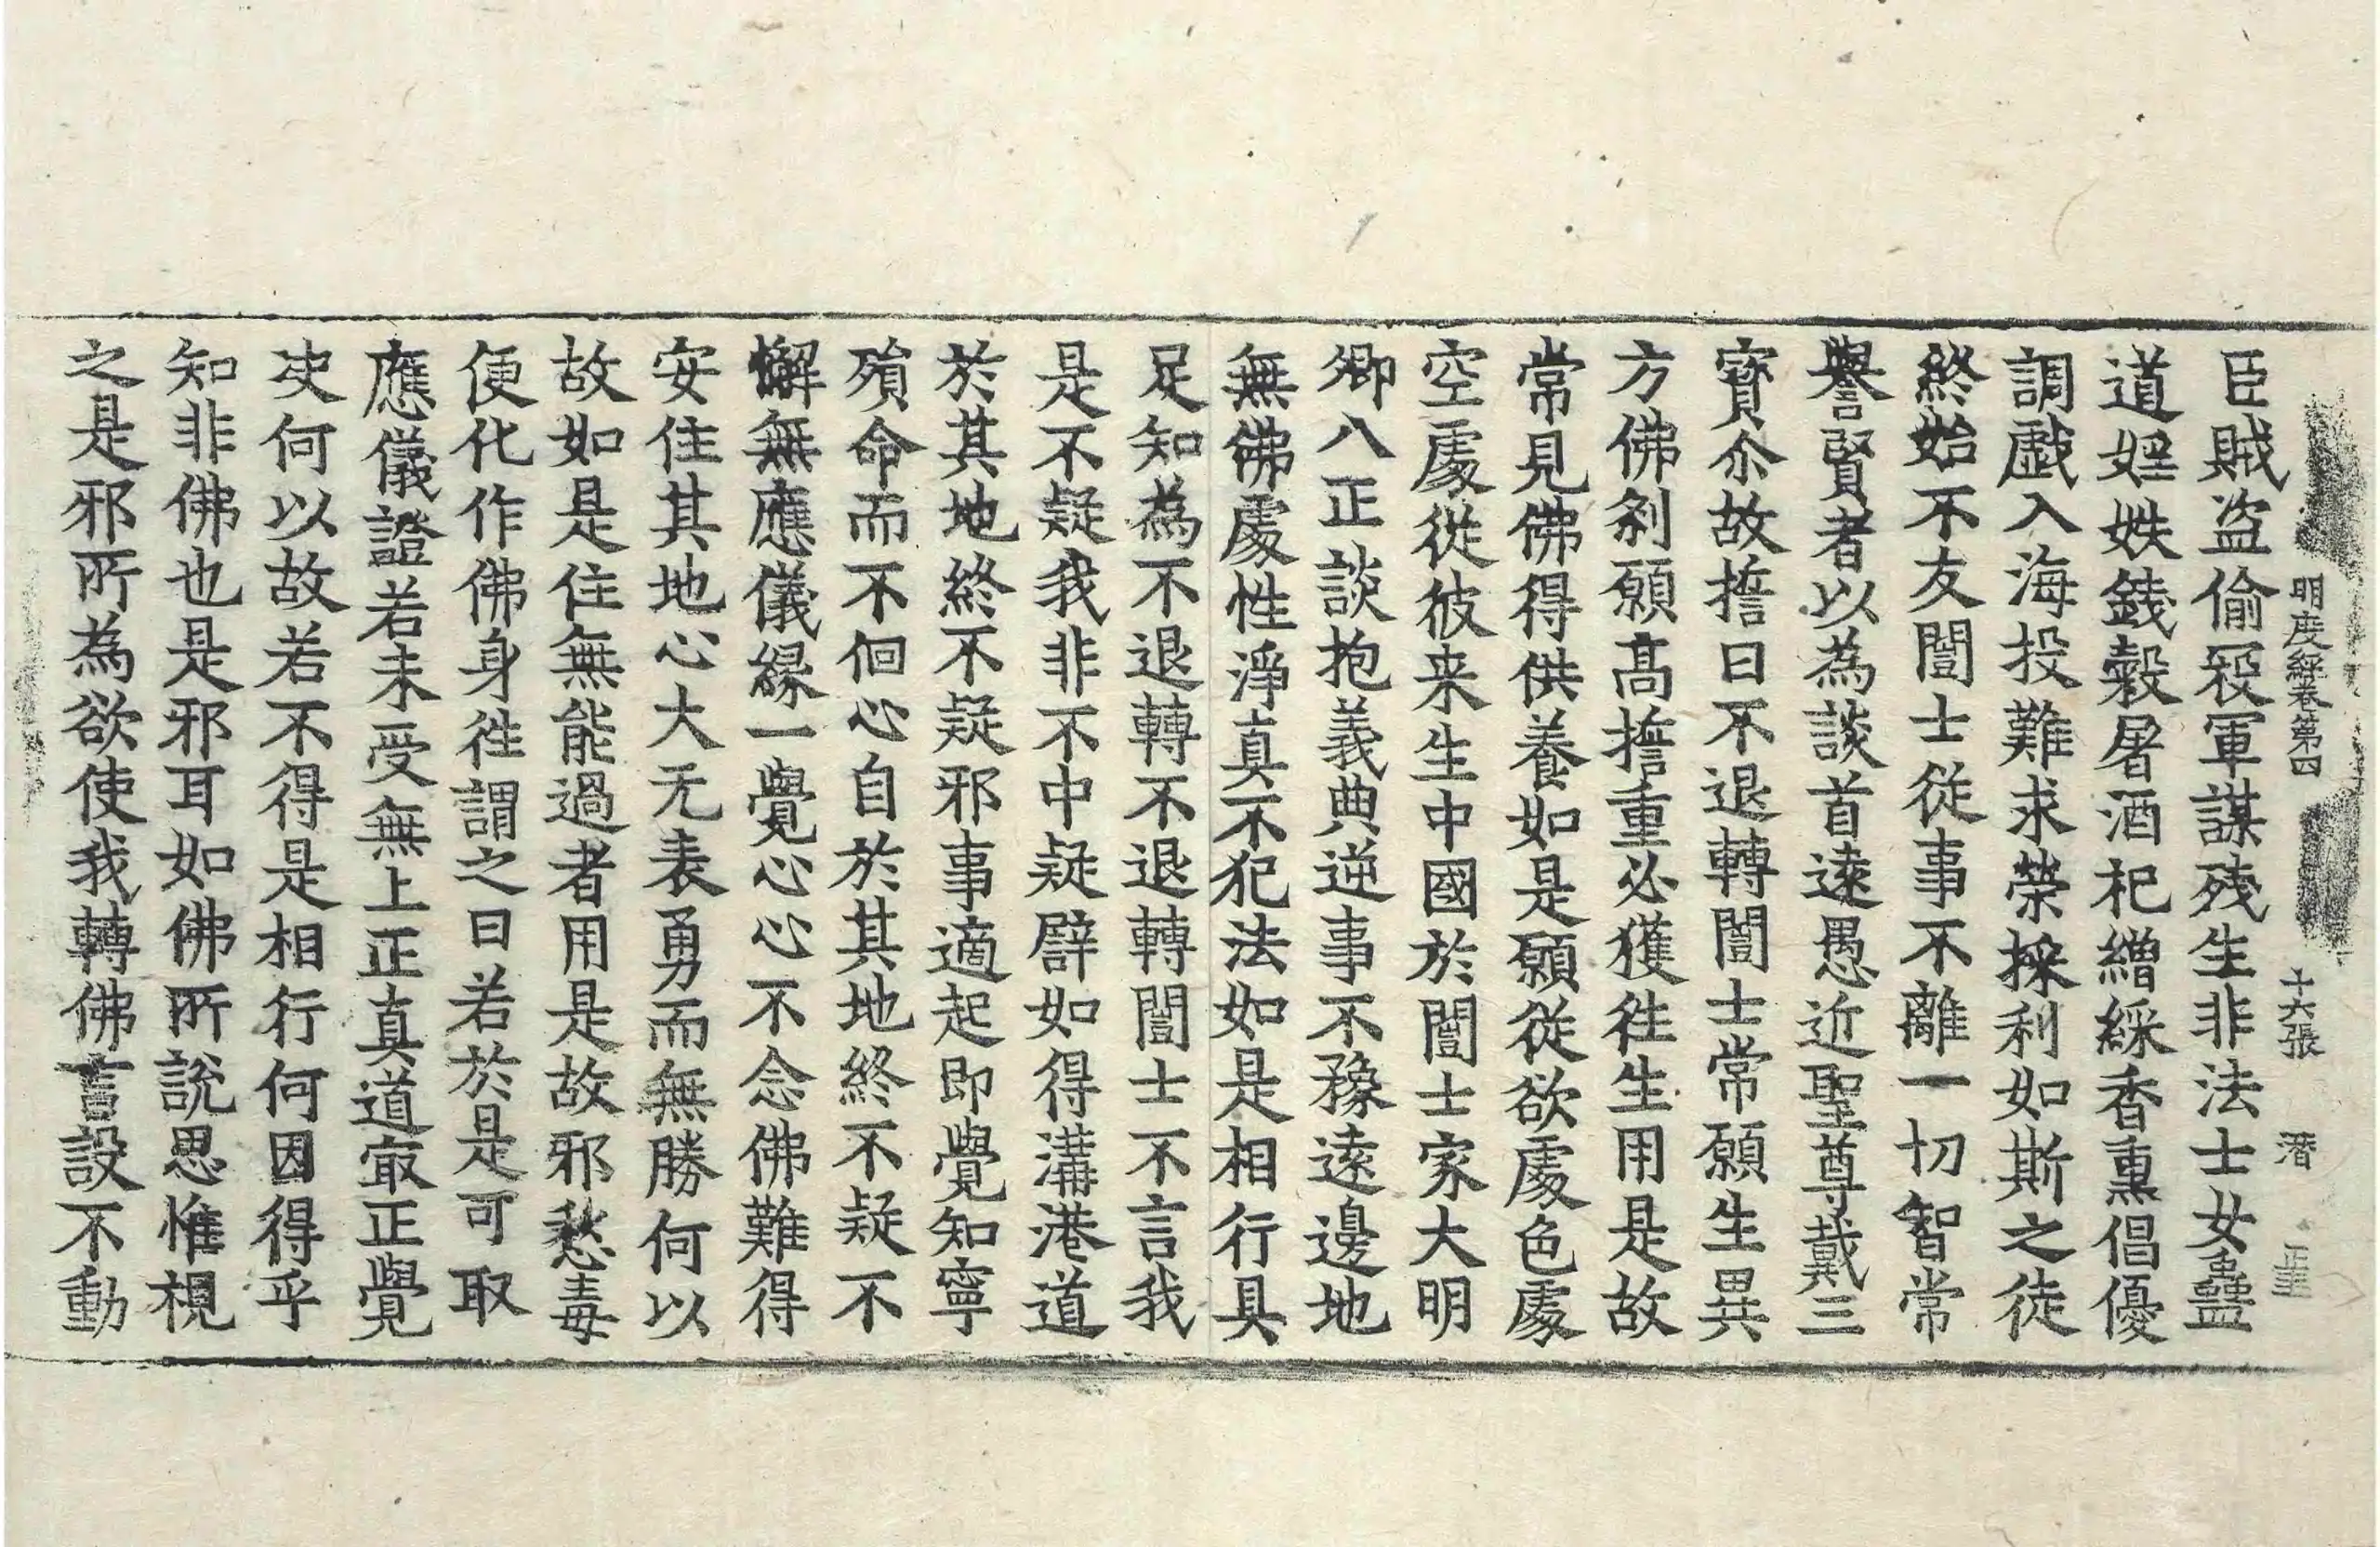 明度經卷第四 十六張 潛
臣賊盜偷叛軍謀殘生非法士女蠱
道婬妷錢穀屠酒祀繒綵香熏倡優
調戲入海投難求榮採利如斯之徒
終始不友闓士從事不離一切智常
譽賢者以為談首遠愚近聖尊戴三
寶尒故擔曰不退轉闓士常願生異
方佛剎願髙擔重必獲徃生用是故
常見佛得供養如是願從欲處色處
空處從彼来生中國於闓士家大明
鄉八正談抱義典逆事不豫遠邊地
無佛處性淨真不犯法如是相行具
足知為不退轉不退轉闓士不言我
是不疑我非不中疑譬如得溝港道
於其地終不疑邪事適起即覺知寧
殞命而不佪心自於其地終不疑不
懈無應儀緣一覺心心不念佛難得
安住其地心大无表勇而無勝何以
故如是住無能過者用是故邪愁毒
便化作佛身徃謂之曰若於是可取
應儀證若未受無上正真道㝡正覺
决何以故若不得是相行何因得乎
知非佛也是邪耳如佛所說思惟視
之是邪所為欲使我轉佛言設不動